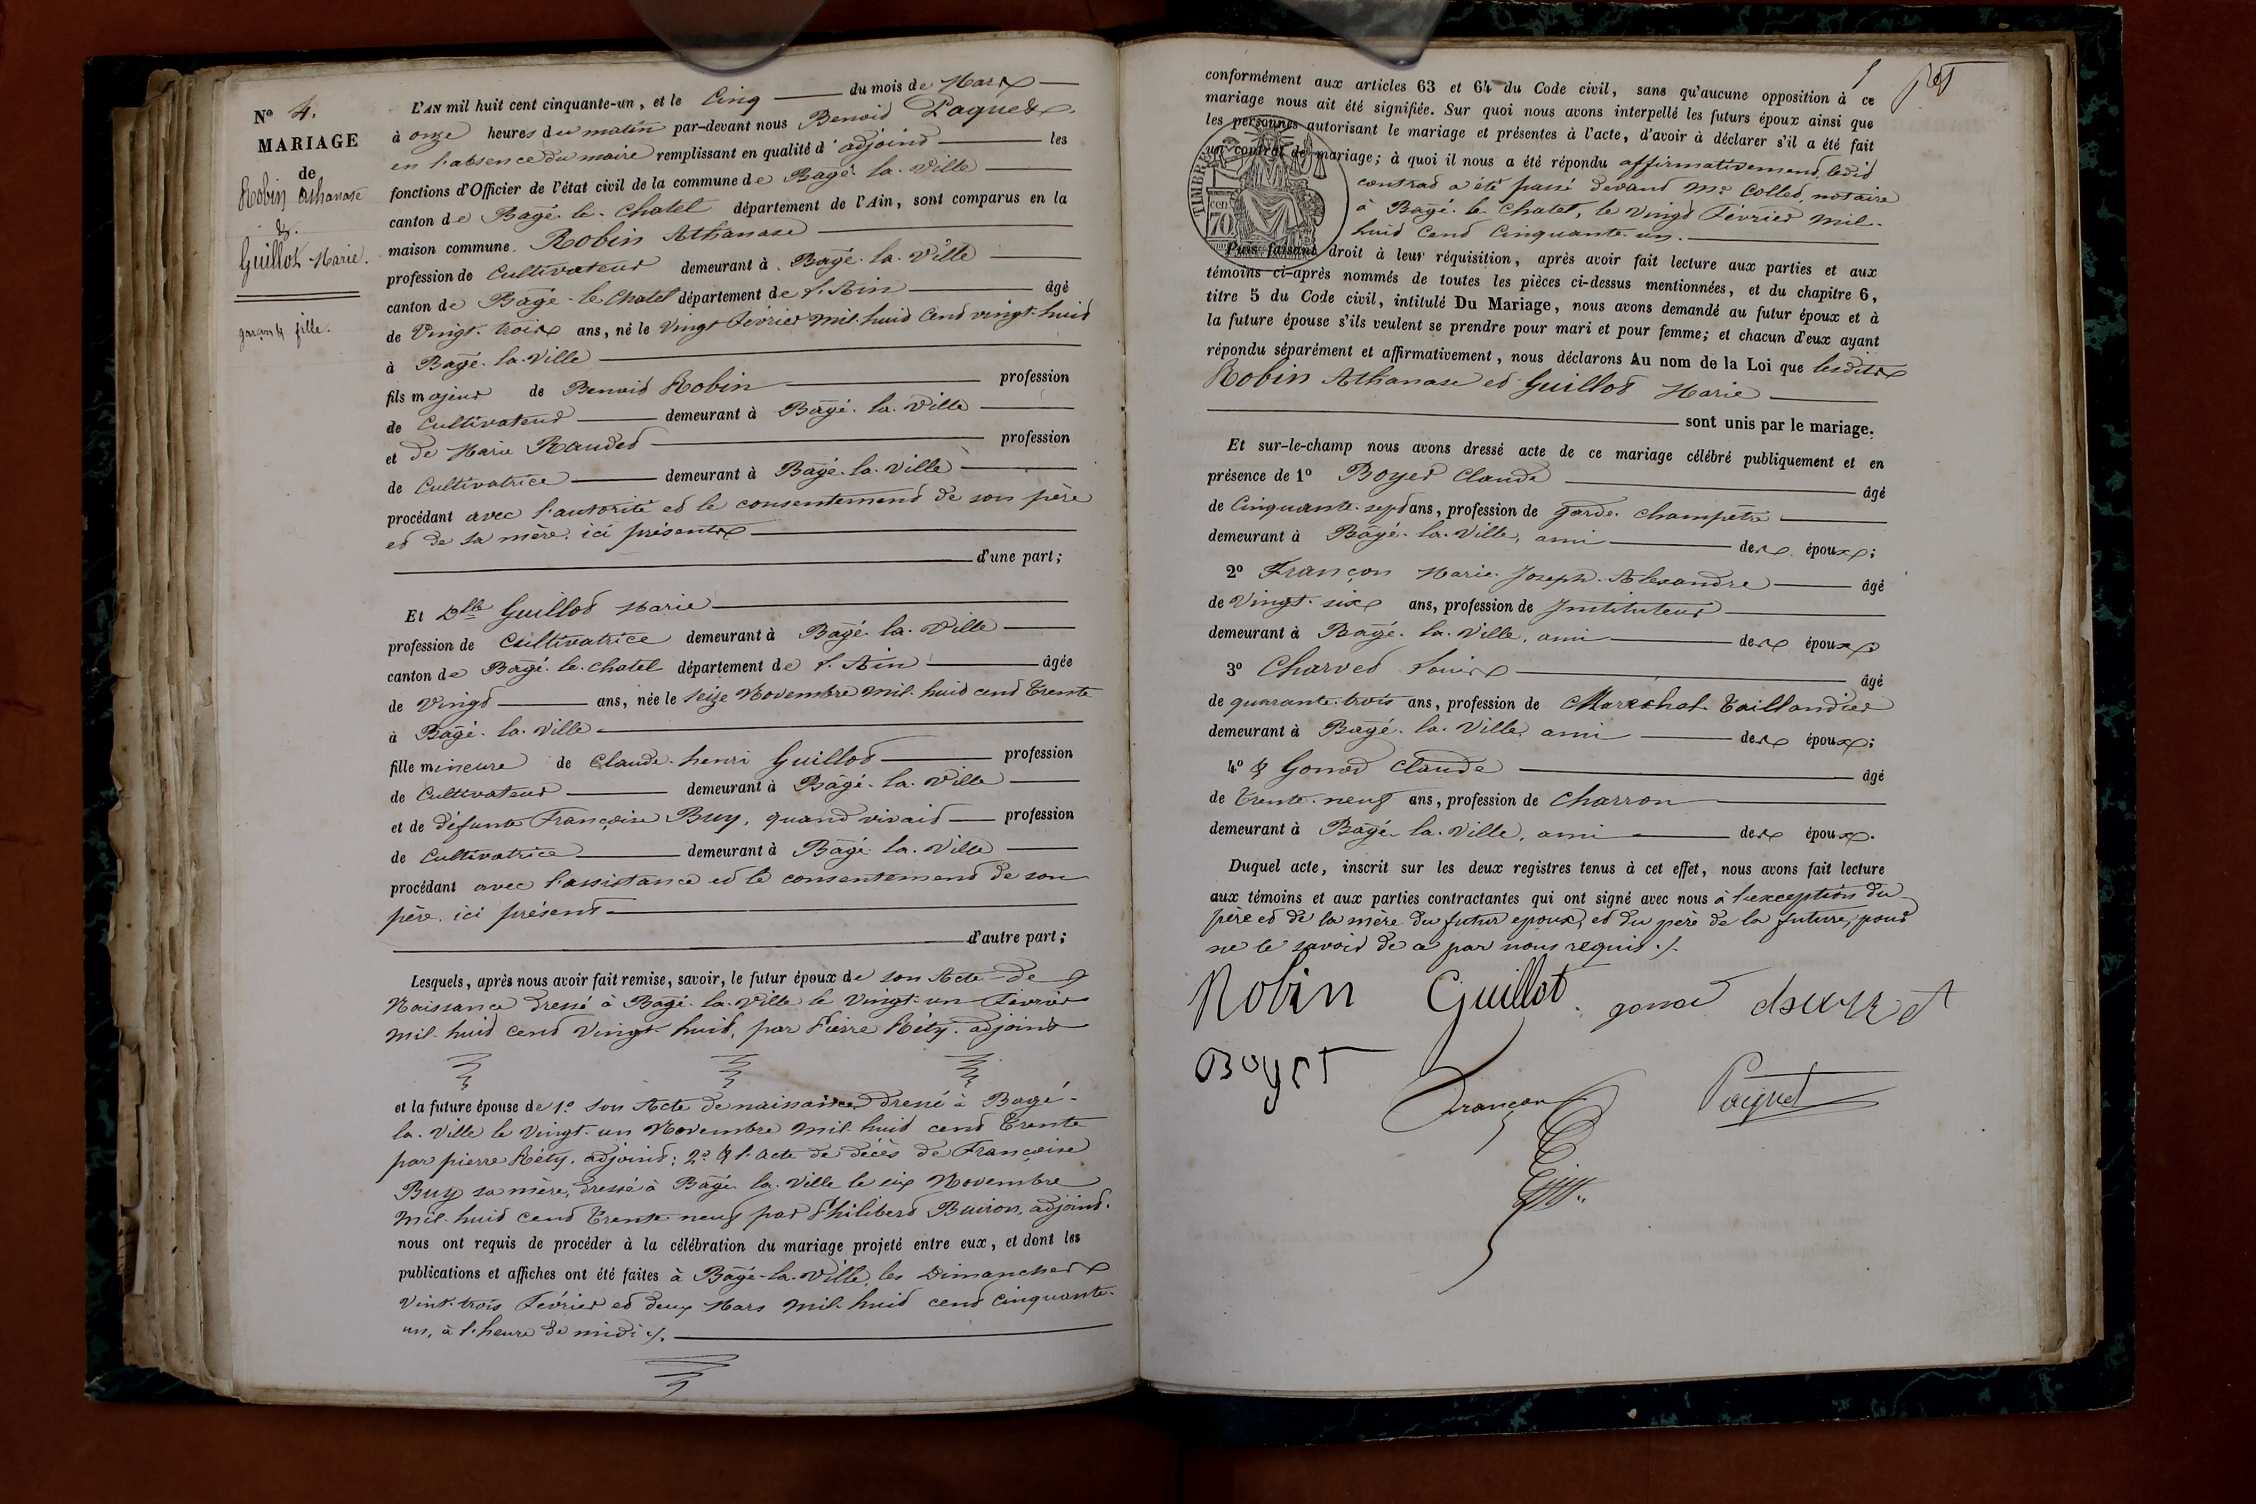 Nº 4.
MARIAGE
de
Robin Athanase
&.
Guillot Marie.
garçon & fille.
L'AN mil huit cent cinquante-un, et le Cinq du mois de Mars
à onze heures du matin par-devant nous Benoit Paquet
en l'absence du maire remplissant en qualité d'adjoint les
fonctions d'Officier de l'état civil de la commune de Bagé-la-Ville
canton de Bagé-le-Chatel département de l'Ain, sont comparus en la
maison commune Robin Athanase
profession de Cultivateur demeurant à Bagé-la-Ville
canton de Bagé-le-Chatel département de l'Ain âgé
de Vingt-trois ans, né le Vingt Février mil-huit Cent vingt-huit
à Bagé-la-Ville
fils majeur de Benoit Robin profession
de Cultivateur demeurant à Bagé-la-Ville
et de Marie Raudet profession
de Cultivatrice demeurant à Bagé-la-Ville
procédant avec l'autorité et le consentement de son père
et de sa mère, ici présents
d'une part;
Et Dlle Guillot Marie
profession de Cultivatrice demeurant à Bagé-la-Ville
canton de Bagé-le-Chatel département de l'Ain âgée
de Vingt ans, née le seize Novembre mil-huit cent Trente
à Bagé-la-Ville
fille mineure de Claude-henri Guillot profession
de Cultivateur demeurant à Bâgé-la-Ville
et de défunte Françoise Buy, quand vivait profession
de Cultivatrice demeurant à Bâgé-la-Ville
procédant avec l'assistance et le consentement de son
père, ici présent
d'autre part;
Lesquels, après nous avoir fait remise, savoir, le futur époux de son Acte de
Naissance dressé à Bagé-la-Ville le Vingt-un Fevrier
mil-huit cent Vingt-huit, par Pierre Réty, adjoint
et la future épouse de 1º son Acte de naissance dressé à Bagé-
la-Ville le Vingt-un Novembre mil-huit cent Trente
par pierre Réty, adjoint; 2º & l'acte de décès de Françoise
Buy sa mère, dressé à Bagé-la-Ville le six Novembre
mil-huit cent Trente-neuf par Philibert Buiron, adjoint.
nous ont requis de procéder à la célébration du mariage projeté entre eux, et dont les
publications et affiches ont été faites à Bâgé-la-Ville, les Dimanches
vint-trois Février et deux Mars mil-huit cent cinquante-
un, à l'heure de midi ./.
conformément aux articles 63 et 64 du Code civil, sans qu'aucune opposition à ce
mariage nous ait été signifiée. Sur quoi nous avons interpellé les futurs époux ainsi que
les personnes autorisant le mariage et présentes à l'acte, d'avoir à déclarer s'il a été fait
un contrat de mariage; à quoi il nous a été répondu affirmativement, ledit
contrat a été passé devant Me Collet, notaire
à Bâgé-le-Chatel, le Vingt Février mil-
huit Cent Cinquante-un.
TIMBRE
cen
70
Puis faisant droit à leur réquisition, après avoir fait lecture aux parties et aux
témoins ci-après nommés de toutes les pièces ci-dessus mentionnées, et du chapitre 6,
titre 5 du Code civil, intitulé Du Mariage, nous avons demandé au futur époux et à
la future épouse s'ils veulent se prendre pour mari et pour femme; et chacun d'eux ayant
répondu séparément et affirmativement, nous déclarons Au nom de la Loi que lesdits
Robin Athanase et Guillot Marie
sont unis par le mariage.
Et sur-le-champ nous avons dressé acte de ce mariage célébré publiquement et en
présence de 1º Boyer Claude âgé
de Cinquante-sept ans, profession de Garde-Champêtre
demeurant à Bâgé-la-Ville, ami des époux;
2º Françon Marie-Joseph-Alexandre âgé
de Vingt-six ans, profession de Instituteur
demeurant à Bagé-la-Ville, ami des époux
3º Charvet Louis âgé
de quarante-trois ans, profession de Maréchal-Taillandier
demeurant à Bagé-la-Ville, ami des époux;
4º & Gonod Claude âgé
de Trente-neuf ans, profession de Charron
demeurant à Bâgé-la-Ville, ami des époux.
Duquel acte, inscrit sur les deux registres tenus à cet effet, nous avons fait lecture
aux témoins et aux parties contractantes qui ont signé avec nous à l'exception du
père et de la mère du futur epoux, et du père de la future, pour
ne le savoir de ce par nous requis ./.
Robin Guillot gonod
Boyer Françon Paquet